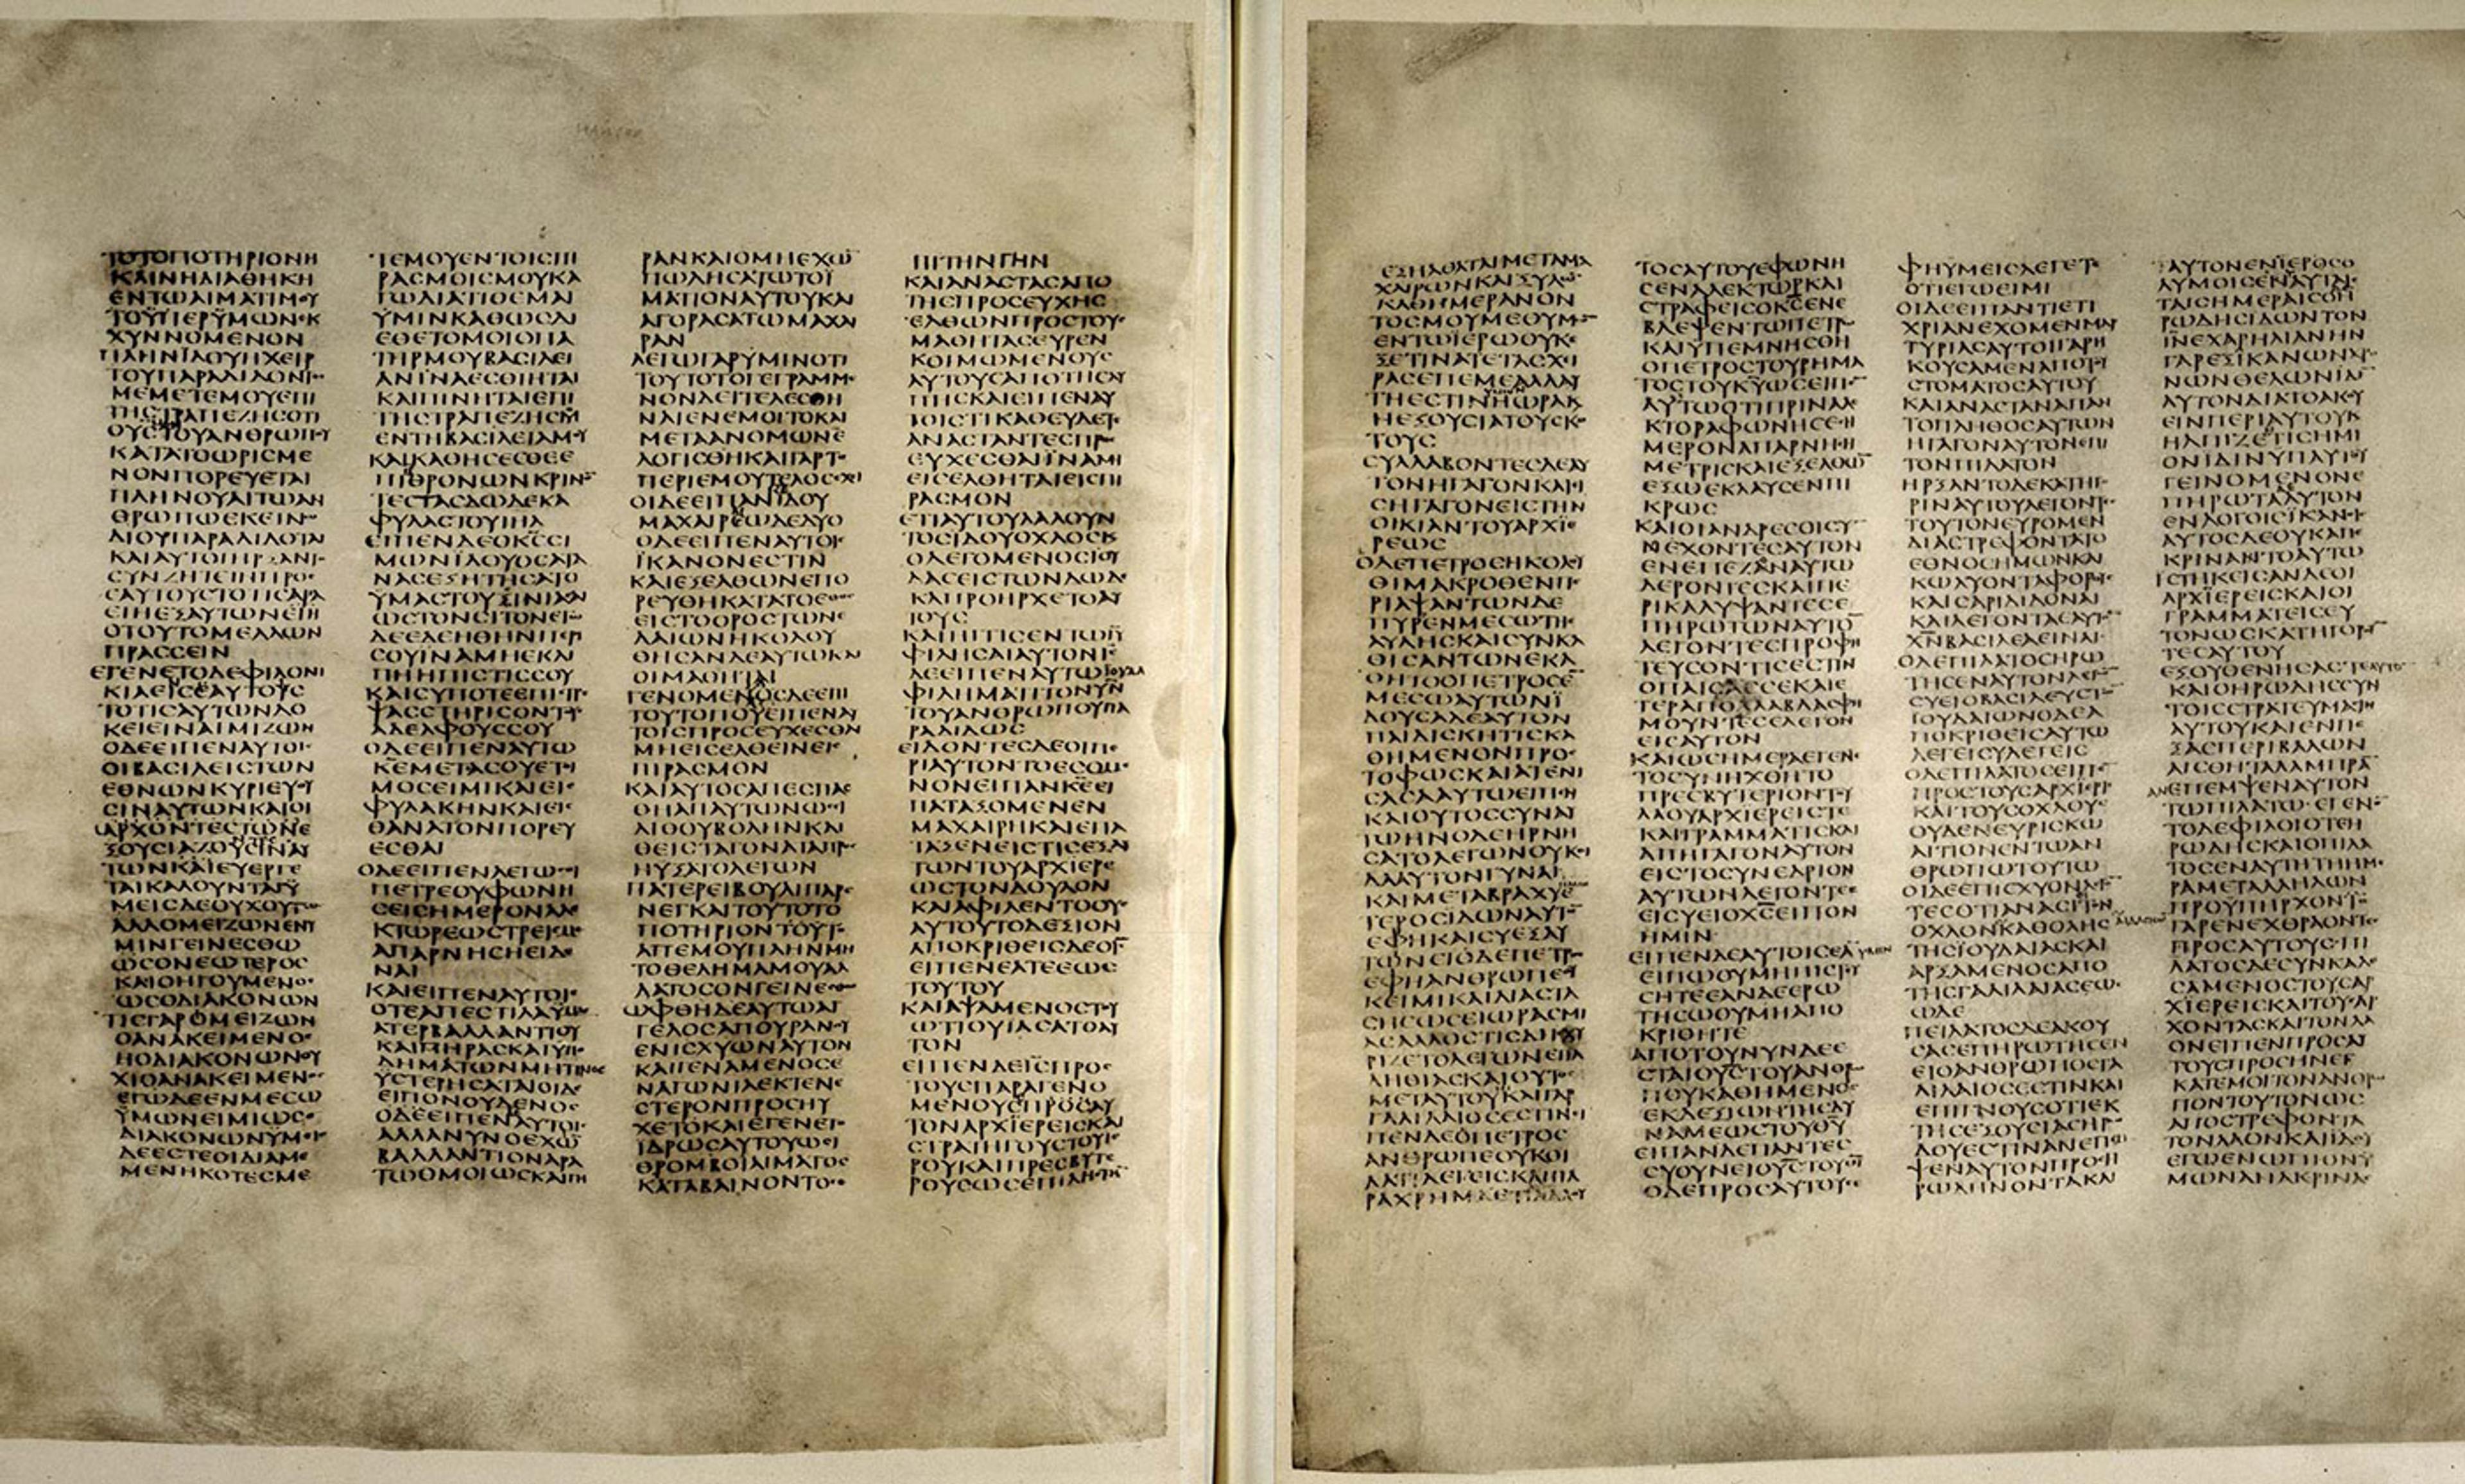 ΤΟΤΟΠΟΤΗΡΙΟΝΗ
ΚΑΙΝΗΔΙΑΘΗΚΗ
ΕΝΤΩΑΙΜΑΤΙΜΟΥ
ΤΟΫΠΕΡΫΜΩΝΕΚ
ΧΥΝΝΟΜΕΝΟΝ
ΠΛΗΝΪΔΟΥΗΧΕΙΡ
ΤΟΥΠΑΡΑΔΙΔΟΝΤΟϹ
ΜΕΜΕΤΕΜΟΥΕΠΙ
ΤΗϹΤΡΑΠΕΖΗϹΟΤΙ
ΚΑΤΑΤΟΩΡΙϹΜΕ
ΝΟΝΠΟΡΕΥΕΤΑΙ
ΠΛΗΝΟΥΑΙΤΩΑΝ
ΘΡΩΠΩΕΚΕΙΝΩ
ΔΙΟΥΠΑΡΑΔΙΔΟΤΑΙ
ΚΑΙΑΥΤΟΙΗΡΞΑΝΤΟ
ϹΥΝΖΗΤΕΙΝΠΡΟϹ
ΕΑΥΤΟΥϹΤΟΤΙϹΑΡΑ
ΕΙΗΕΞΑΥΤΩΝΕΙΗ
ΟΤΟΥΤΟΜΕΛΛΩΝ
ΠΡΑϹϹΕΙΝ
ΕΓΕΝΕΤΟΔΕΦΙΛΟΝΙ
ΚΙΑΕΙϹΕΑΥΤΟΥϹ
ΤΟΤΙϹΑΥΤΩΝΔΟ
ΚΕΙΕΙΝΑΙΜΙΖΩΝ
ΟΔΕΕΙΠΕΝΑΥΤΟΙϹ
ΟΙΒΑϹΙΛΕΙϹΤΩΝ
ΕΘΝΩΝΚΥΡΙΕΥΟΥ
ϹΙΝΑΥΤΩΝΚΑΙΟΙ
ΑΡΧΟΝΤΕϹΤΩΝΕ
ΞΟΥϹΙΑΖΟΥϹΙΝΑΥ
ΤΩΝΚΑΙΕΥΕΡΓΕ
ΤΑΙΚΑΛΟΥΝΤΑΙΫ
ΜΕΙϹΔΕΟΥΧΟΥΤΩϹ
ΑΛΛΟΜΕΙΖΩΝΕΝΫ
ΜΙΝΓΕΙΝΕϹΘΩ
ΩϹΟΝΕΩΤΕΡΟϹ
ΚΑΙΟΗΓΟΥΜΕΝΟϹ
ΩϹΟΔΙΑΚΟΝΩΝ
ΤΙϹΓΑΡΟΜΕΙΖΩΝ
ΟΑΝΑΚΕΙΜΕΝΟϹ
ΗΟΔΙΑΚΟΝΩΝΟΥ
ΧΙΟΑΝΑΚΕΙΜΕΝΟϹ
ΕΓΩΔΕΕΝΜΕϹΩ
ΫΜΩΝΕΙΜΙΩϹΟ
ΔΙΑΚΟΝΩΝΫΜΕΙϹ
ΔΕΕϹΤΕΟΙΔΙΑΜΕ
ΜΕΝΗΚΟΤΕϹΜΕ
ΤΕΜΟΥΕΝΤΟΙϹΠΙ
ΡΑϹΜΟΙϹΜΟΥΚΑ
ΓΩΔΙΑΤΙΘΕΜΑΙ
ΫΜΙΝΚΑΘΩϹΔΙ
ΕΘΕΤΟΜΟΙΟΠΑ
ΤΗΡΜΟΥΒΑϹΙΛΕΙ
ΑΝΪΝΑΕϹΘΙΗΤΑΙ
ΚΑΙΠΙΝΗΤΑΙΕΠΙ
ΤΗϹΤΡΑΠΕΖΗϹΜΟΥ
ΕΝΤΗΒΑϹΙΛΕΙΑΜΟΥ
ΚΑΙΚΑΘΗϹΕϹΘΕΕ
ΠΙΘΡΟΝΩΝΚΡΙΝΟΝ
ΤΕϹΤΑϹΔΩΔΕΚΑ
ΦΥΛΑϹΤΟΥΙΗΛ
ΕΙΠΕΝΔΕΟΚϹϹΙ
ΜΩΝΪΔΟΥΟϹΑΤΑ
ΝΑϹΕΞΗΤΗϹΑΤΟ
ΥΜΑϹΤΟΥϹΙΝΙΑϹΑΙ
ΩϹΤΟΝϹΙΤΟΝΕΓΩ
ΔΕΕΔΕΗΘΗΝΠΕΡΙ
ϹΟΥΪΝΑΜΗΕΚΛΙ
ΠΗΗΠΙϹΤΙϹϹΟΥ
ΚΑΙϹΥΠΟΤΕΕΠΙϹΤΡΕ
ΨΑϹϹΤΗΡΙϹΟΝΤΟΥϹ
ΑΔΕΛΦΟΥϹϹΟΥ
ΟΔΕΕΙΠΕΝΑΥΤΩ
ΚΕΜΕΤΑϹΟΥΕΤΟΙ
ΜΟϹΕΙΜΙΚΑΙΕΙϹ
ΦΥΛΑΚΗΝΚΑΙΕΙϹ
ΘΑΝΑΤΟΝΠΟΡΕΥ
ΕϹΘΑΙ
ΟΔΕΕΙΠΕΝΛΕΓΩϹΟΙ
ΠΕΤΡΕΟΥΦΩΝΗ
ϹΕΙϹΗΜΕΡΟΝΑΛΕ
ΚΤΩΡΕΩϹΤΡΕΙϹΜΕ
ΑΠΑΡΝΗϹΗΕΙΔΕ
ΝΑΙ
ΚΑΙΕΙΠΕΝΑΥΤΟΙϹ
ΟΤΕΑΠΕϹΤΙΛΑΫΜΑϹ
ΑΤΕΡΒΑΛΛΑΝΤΙΟΥ
ΚΑΙΠΗΡΑϹΚΑΙΫΠΟ
ΔΗΜΑΤΩΝΜΗΤΙΝΟϹ
ΥϹΤΕΡΗϹΑΤΑΙΟΙΔΕ
ΕΙΠΟΝΟΥΔΕΝΟϹ
ΟΔΕΕΙΠΕΝΑΥΤΟΙϹ
ΑΛΛΑΝΥΝΟΕΧΩΝ
ΒΑΛΛΑΝΤΙΟΝΑΡΑ
ΤΩΟΜΟΙΩϹΚΑΙΠΗ
ΡΑΝΚΑΙΟΜΗΕΧΩΝ
ΠΩΛΗϹΑΤΩΤΟΪ
ΜΑΤΙΟΝΑΥΤΟΥΚΑΙ
ΑΓΟΡΑϹΑΤΩΜΑΧΑΙ
ΡΑΝ
ΛΕΓΩΓΑΡΫΜΙΝΟΤΙ
ΤΟΥΤΟΤΟΓΕΓΡΑΜΜΕ
ΝΟΝΔΕΙΤΕΛΕϹΘΗ
ΝΑΙΕΝΕΜΟΙΤΟΚΑΙ
ΜΕΤΑΑΝΟΜΩΝΕ
ΛΟΓΙϹΘΗΚΑΙΓΑΡΤΟ
ΠΕΡΙΕΜΟΥΤΕΛΟϹΕΧΙ
ΟΙΔΕΕΙΠΑΝΪΔΟΥ
ΜΑΧΑΙΡΕΩΔΕΔΥΟ
ΟΔΕΕΙΠΕΝΑΥΤΟΙϹ
ΪΚΑΝΟΝΕϹΤΙΝ
ΚΑΙΕΞΕΛΘΩΝΕΠΟ
ΡΕΥΘΗΚΑΤΑΤΟΕΘΟϹ
ΕΙϹΤΟΟΡΟϹΤΩΝΕ
ΛΑΙΩΝΗΚΟΛΟΥ
ΘΗϹΑΝΔΕΑΥΤΩΚΑΙ
ΟΙΜΑΘΗΤΑΙ
ΓΕΝΟΜΕΝΟϹΔΕΕΠΙ
ΤΟΥΤΟΠΟΥΕΙΠΕΝΑΥ
ΤΟΙϹΠΡΟϹΕΥΧΕϹΘΑΙ
ΜΗΕΙϹΕΛΘΕΙΝΕΙϹ
ΠΙΡΑϹΜΟΝ
ΚΑΙΑΥΤΟϹΑΠΕϹΠΑϹ
ΘΗΑΠΑΥΤΩΝΩϹΕΙ
ΛΙΘΟΥΒΟΛΗΝΚΑΙ
ΘΕΙϹΤΑΓΟΝΑΤΑΠΡΟϹ
ΗΥΞΑΤΟΛΕΓΩΝ
ΠΑΤΕΡΕΙΒΟΥΛΙΠΑΡΕ
ΝΕΓΚΑΙΤΟΥΤΟΤΟ
ΠΟΤΗΡΙΟΝΤΟΥΤΟ
ΑΠΕΜΟΥΠΛΗΝΜΗ
ΤΟΘΕΛΗΜΑΜΟΥΑΛ
ΛΑΤΟϹΟΝΓΕΙΝΕϹΘΩ
ΩΦΘΗΔΕΑΥΤΩΑΓ
ΓΕΛΟϹΑΠΟΥΡΑΝΟΥ
ΕΝΙϹΧΥΩΝΑΥΤΟΝ
ΚΑΙΓΕΝΑΜΕΝΟϹΕ
ΝΑΓΩΝΙΑΕΚΤΕΝΕ
ϹΤΕΡΟΝΠΡΟϹΗΥ
ΧΕΤΟΚΑΙΕΓΕΝΕΤΟ
ΪΔΡΩϹΑΥΤΟΥΩϹΕΙ
ΘΡΟΜΒΟΙΑΙΜΑΤΟϹ
ΚΑΤΑΒΑΙΝΟΝΤΟϹ
ΠΙΤΗΝΓΗΝ
ΚΑΙΑΝΑϹΤΑϹΑΠΟ
ΤΗϹΠΡΟϹΕΥΧΗϹ
ΕΛΘΩΝΠΡΟϹΤΟΥϹ
ΜΑΘΗΤΑϹΕΥΡΕΝ
ΚΟΙΜΩΜΕΝΟΥϹ
ΑΥΤΟΥϹΑΠΟΤΗϹΛΥ
ΠΗϹΚΑΙΕΙΠΕΝΑΥ
ΤΟΙϹΤΙΚΑΘΕΥΔΕΤΕ
ΑΝΑϹΤΑΝΤΕϹΠΡΟϹ
ΕΥΧΕϹΘΑΙΪΝΑΜΗ
ΕΙϹΕΛΘΗΤΑΙΕΙϹΠΙ
ΡΑϹΜΟΝ
ΕΤΙΑΥΤΟΥΛΑΛΟΥΝ
ΤΟϹΪΔΟΥΟΧΛΟϹΚΑΙ
ΟΛΕΓΟΜΕΝΟϹΙΟΥ
ΔΑϹΕΙϹΤΩΝΔΩΔΕ
ΚΑΠΡΟΗΡΧΕΤΟΑΥ
ΤΟΥϹ
ΚΑΙΗΓΓΙϹΕΝΤΩΙΥ
ΦΙΛΗϹΑΙΑΥΤΟΝΙϹ
ΔΕΕΙΠΕΝΑΥΤΩΙΟΥΔΑ
ΦΙΛΗΜΑΤΙΤΟΝΥΝ
ΤΟΥΑΝΘΡΩΠΟΥΠΑ
ΡΑΔΙΔΩϹ
ΕΙΔΟΝΤΕϹΔΕΟΙΠΕ
ΡΙΑΥΤΟΝΤΟΕϹΟΜΕ
ΝΟΝΕΙΠΑΝΚΕΕΙ
ΠΑΤΑΞΟΜΕΝΕΝ
ΜΑΧΑΙΡΗΚΑΙΕΠΑ
ΤΑΞΕΝΕΙϹΤΙϹΕΞΑΥ
ΤΩΝΤΟΥΑΡΧΙΕΡΕ
ΩϹΤΟΝΔΟΥΛΟΝ
ΚΑΙΑΦΙΛΕΝΤΟΟΥϹ
ΑΥΤΟΥΤΟΔΕΞΙΟΝ
ΑΠΟΚΡΙΘΕΙϹΔΕΟΙϹ
ΕΙΠΕΝΕΑΤΕΕΩϹ
ΤΟΥΤΟΥ
ΚΑΙΑΨΑΜΕΝΟϹΤΟΥ
ΩΤΙΟΥΙΑϹΑΤΟΑΥ
ΤΟΝ
ΕΙΠΕΝΔΕΙϹΠΡΟϹ
ΤΟΥϹΠΑΡΑΓΕΝΟ
ΜΕΝΟΥϹΠΡΟϹΑΥ
ΤΟΝΑΡΧΪΕΡΕΙϹΚΑΙ
ϹΤΡΑΤΗΓΟΥϹΤΟΥΪΕ
ΡΟΥΚΑΙΠΡΕϹΒΥΤΕ
ΡΟΥϹΩϹΕΠΙΛΗϹΤΗΝ
ΕΞΗΛΘΑΤΑΙΜΕΤΑΜΑ
ΧΑΙΡΩΝΚΑΙΞΥΛΩΝ
ΚΑΘΗΜΕΡΑΝΟΝ
ΤΟϹΜΟΥΜΕΘΥΜΩΝ
ΕΝΤΩΪΕΡΩΟΥΚΕ
ΞΕΤΙΝΑΤΕΤΑϹΧΙ
ΡΑϹΕΠΕΜΕΑΛΛΑΥ
ΤΗΕϹΤΙΝΗΩΡΑΚ
ΗΕΞΟΥϹΙΑΤΟΥϹΚΟ
ΤΟΥϹ
ϹΥΛΛΑΒΟΝΤΕϹΔΕΑΥ
ΤΟΝΗΓΑΓΟΝΚΑΙΕΙ
ϹΗΓΑΓΟΝΕΙϹΤΗΝ
ΟΙΚΙΑΝΤΟΥΑΡΧΪΕ
ΡΕΩϹ
ΟΔΕΠΕΤΡΟϹΗΚΟΛΟΥ
ΘΙΜΑΚΡΟΘΕΝΠΕ
ΡΙΑΨΑΝΤΩΝΔΕ
ΠΥΡΕΝΜΕϹΩΤΗϹ
ΑΥΛΗϹΚΑΙϹΥΝΚΑ
ΘΙϹΑΝΤΩΝΕΚΑ
ΘΗΤΟΟΠΕΤΡΟϹΕΝ
ΜΕϹΩΑΥΤΩΝΪ
ΔΟΥϹΑΔΕΑΥΤΟΝ
ΠΑΙΔΙϹΚΗΤΙϹΚΑ
ΘΗΜΕΝΟΝΠΡΟϹ
ΤΟΦΩϹΚΑΙΑΤΕΝΙ
ϹΑϹΑΑΥΤΩΕΙΠΕΝ
ΚΑΙΟΥΤΟϹϹΥΝΑΥ
ΤΩΗΝΟΔΕΗΡΝΗ
ϹΑΤΟΛΕΓΩΝΟΥΚΟΙ
ΔΑΑΥΤΟΝΓΥΝΑΙ
ΚΑΙΜΕΤΑΒΡΑΧΥΕ
ΤΕΡΟϹΪΔΩΝΑΥΤΟΝ
ΕΦΗΚΑΙϹΥΕΞΑΥ
ΤΩΝΕΙΟΔΕΠΕΤΡΟϹ
ΕΦΗΑΝΘΡΩΠΕΟΥ
ΚΕΙΜΙΚΑΙΔΙΑϹΤΑ
ϹΗϹΩϹΕΙΩΡΑϹΜΙ
ΑϹΑΛΛΟϹΤΙϹΔΙΙϹΧΥ
ΡΙΖΕΤΟΛΕΓΩΝΕΠΑ
ΛΗΘΙΑϹΚΑΙΟΥΤΟϹ
ΜΕΤΑΥΤΟΥΚΑΙΓΑΡ
ΓΑΛΙΛΑΙΟϹΕϹΤΙΝΕΙ
ΠΕΝΔΕΟΠΕΤΡΟϹ
ΑΝΘΡΩΠΕΟΥΚΟΙ
ΔΑΤΙΛΕΓΕΙϹΚΑΙΠΑ
ΤΟϹΑΥΤΟΥΕΦΩΝΗ
ϹΕΝΑΛΕΚΤΩΡΚΑΙ
ϹΤΡΑΦΕΙϹΟΚϹΕΝΕ
ΒΛΕΨΕΝΤΩΠΕΤΡΩ
ΚΑΙΫΠΕΜΝΗϹΘΗ
ΟΠΕΤΡΟϹΤΟΥΡΗΜΑ
ΤΟϹΤΟΥΚΥΩϹΕΙΠΕΝ
ΑΥΤΩΟΤΙΠΡΙΝΑΛΕ
ΚΤΟΡΑΦΩΝΗϹΕϹΗ
ΜΕΡΟΝΑΠΑΡΝΗϹΗ
ΜΕΤΡΙϹΚΑΙΕΞΕΛΘΩΝ
ΕΞΩΕΚΛΑΥϹΕΝΠΙ
ΚΡΩϹ
ΚΑΙΟΙΑΝΔΡΕϹΟΙϹΥ
ΝΕΧΟΝΤΕϹΑΥΤΟΝ
ΕΝΕΠΕΖΑΝΑΥΤΩ
ΔΕΡΟΝΤΕϹΚΑΙΠΕ
ΡΙΚΑΛΥΨΑΝΤΕϹΕ
ΠΗΡΩΤΩΝΑΥΤΟΝ
ΛΕΓΟΝΤΕϹΠΡΟΦΗ
ΤΕΥϹΟΝΤΙϹΕϹΤΙΝ
ΟΠΑΙϹΑϹϹΕΚΑΙΕ
ΤΕΡΑΠΟΛΛΑΒΛΑϹΦΗ
ΜΟΥΝΤΕϹΕΛΕΓΟΝ
ΕΙϹΑΥΤΟΝ
ΚΑΙΩϹΗΜΕΡΑΕΓΕΝΕ
ΤΟϹΥΝΗΧΘΗΤΟ
ΠΡΕϹΒΥΤΕΡΙΟΝΤΟΥ
ΛΑΟΥΑΡΧΙΕΡΕΙϹΤΕ
ΚΑΙΓΡΑΜΜΑΤΙϹΚΑΙ
ΑΠΗΓΑΓΟΝΑΥΤΟΝ
ΕΙϹΤΟϹΥΝΕΔΡΙΟΝ
ΑΥΤΩΝΛΕΓΟΝΤΕϹ
ΕΙϹΥΕΙΟΧϹΕΙΠΟΝ
ΗΜΙΝ
ΕΙΠΕΝΔΕΑΥΤΟΙϹΕΑΝ
ΕΙΠΩΟΥΜΗΠΙϹΤΕΥ
ϹΗΤΕΕΑΝΔΕΕΡΩ
ΤΗϹΩΟΥΜΗΑΠΟ
ΚΡΙΘΗΤΕ
ΑΠΟΤΟΥΝΥΝΔΕΕ
ϹΤΑΙΟΥϹΤΟΥΑΝΘΡΩ
ΠΟΥΚΑΘΗΜΕΝΟϹ
ΕΚΔΕΞΙΩΝΤΗϹΔΥ
ΝΑΜΕΩϹΤΟΥΘΥ
ΕΙΠΑΝΔΕΠΑΝΤΕϹ
ϹΥΟΥΝΕΙΟΥϹΤΟΥΘΥ
ΟΔΕΠΡΟϹΑΥΤΟΥϹ
ΦΗΫΜΕΙϹΛΕΓΕΤΕ
ΟΤΙΕΓΩΕΙΜΙ
ΟΙΔΕΕΙΠΑΝΤΙΕΤΙ
ΧΡΙΑΝΕΧΟΜΕΝΜΑΡ
ΤΥΡΙΑϹΑΥΤΟΙΓΑΡΗ
ΚΟΥϹΑΜΕΝΑΠΟΤΟΥ
ϹΤΟΜΑΤΟϹΑΥΤΟΥ
ΚΑΙΑΝΑϹΤΑΝΑΠΑΝ
ΤΟΠΛΗΘΟϹΑΥΤΩΝ
ΗΓΑΓΟΝΑΥΤΟΝΕΠΙ
ΤΟΝΠΙΛΑΤΟΝ
ΗΡΞΑΝΤΟΔΕΚΑΤΗΓΟ
ΡΙΝΑΥΤΟΥΛΕΓΟΝΤΕϹ
ΤΟΥΤΟΝΕΥΡΟΜΕΝ
ΔΙΑϹΤΡΕΦΟΝΤΑΤΟ
ΕΘΝΟϹΗΜΩΝΚΑΙ
ΚΩΛΥΟΝΤΑΦΟΡΟΥϹ
ΚΑΙϹΑΡΙΔΙΔΟΝΑΙ
ΚΑΙΛΕΓΟΝΤΑΕΑΥΤΟΝ
ΧΝΒΑϹΙΛΕΑΕΙΝΑΙ
ΟΔΕΠΙΛΑΤΟϹΗΡΩ
ΤΗϹΕΝΑΥΤΟΝΛΕΓΩΝ
ϹΥΕΙΟΒΑϹΙΛΕΥϹΤΩΝ
ΙΟΥΔΑΙΩΝΟΔΕΑ
ΠΟΚΡΙΘΕΙϹΑΥΤΩ
ΛΕΓΕΙϹΥΛΕΓΕΙϹ
ΟΔΕΠΙΛΑΤΟϹΕΙΠΕΝ
ΠΡΟϹΤΟΥϹΑΡΧΙΕΡΕΙϹ
ΚΑΙΤΟΥϹΟΧΛΟΥϹ
ΟΥΔΕΝΕΥΡΙϹΚΩ
ΑΙΤΙΟΝΕΝΤΩΑΝ
ΘΡΩΠΩΤΟΥΤΩ
ΟΙΔΕΕΠΙϹΧΥΟΝΛΕΓΟΝ
ΤΕϹΟΤΙΑΝΑϹΙΕΙΤΟΝ
ΟΧΛΟΝΚΑΘΟΛΗϹ
ΤΗϹΙΟΥΔΑΙΑϹΚΑΙ
ΑΡΞΑΜΕΝΟϹΑΠΟ
ΤΗϹΓΑΛΙΛΑΙΑϹΕΩϹ
ΩΔΕ
ΠΕΙΛΑΤΟϹΔΕΑΚΟΥ
ϹΑϹΕΠΗΡΩΤΗϹΕΝ
ΕΙΟΑΝΘΡΩΠΟϹΓΑ
ΛΙΛΑΙΟϹΕϹΤΙΝΚΑΙ
ΕΠΙΓΝΟΥϹΟΤΙΕΚ
ΤΗϹΕΞΟΥϹΙΑϹΗΡΩ
ΔΟΥΕϹΤΙΝΑΝΕΠΕΜ
ΨΕΝΑΥΤΟΝΠΡΟϹΗ
ΡΩΔΗΝΟΝΤΑΚΑΙ
ΑΥΤΟΝΕΝΪΕΡΟϹΟ
ΛΥΜΟΙϹΕΝΑΥΤΑΙϹ
ΤΑΙϹΗΜΕΡΑΙϹΟΗ
ΡΩΔΗϹΙΔΩΝΤΟΝ
ΙΝΕΧΑΡΗΛΙΑΝΗΝ
ΓΑΡΕΞΙΚΑΝΩΝΧΡΟ
ΝΩΝΘΕΛΩΝΙΔΕΙΝ
ΑΥΤΟΝΔΙΑΤΟΑΚΟΥ
ΕΙΝΠΕΡΙΑΥΤΟΥΚ
ΗΛΠΙΖΕΤΙϹΗΜΙ
ΟΝΙΔΙΝΥΠΑΥΤΟΥ
ΓΕΙΝΟΜΕΝΟΝΕ
ΠΗΡΩΤΑΔΑΥΤΟΝ
ΕΝΛΟΓΟΙϹΪΚΑΝΟΙϹ
ΑΥΤΟϹΔΕΟΥΚΑΠΕ
ΚΡΙΝΑΝΤΟΑΥΤΩ
ΙϹΤΗΚΕΙϹΑΝΔΕΟΙ
ΑΡΧΪΕΡΕΙϹΚΑΙΟΙ
ΓΡΑΜΜΑΤΕΙϹΕΥ
ΤΟΝΩϹΚΑΤΗΓΟΡΟΥΝ
ΤΕϹΑΥΤΟΥ
ΕΞΟΥΘΕΝΗϹΑϹΔΕΑΥΤΟΝ
ΚΑΙΟΗΡΩΔΗϹϹΥΝ
ΤΟΙϹϹΤΡΑΤΕΥΜΑϹΙΝ
ΑΥΤΟΥΚΑΙΕΝΠΕ
ΞΑϹΠΕΡΙΒΑΛΩΝ
ΑΙϹΘΗΤΑΛΑΜΠΡΑΝ
ΑΝΕΠΕΜΨΕΝΑΥΤΟΝ
ΤΩΠΙΛΑΤΩΕΓΕΝΟΝ
ΤΟΔΕΦΙΛΟΙΟΤΕΗ
ΡΩΔΗϹΚΑΙΟΠΙΛΑ
ΤΟϹΕΝΑΥΤΗΤΗΗΜΕ
ΡΑΜΕΤΑΛΛΗΛΩΝ
ΠΡΟΥΠΗΡΧΟΝ
ΓΑΡΕΝΕΧΘΡΑΟΝΤΕϹ
ΠΡΟϹΑΥΤΟΥϹΠΙ
ΛΑΤΟϹΔΕϹΥΝΚΑΛΕ
ϹΑΜΕΝΟϹΤΟΥϹΑΡ
ΧΪΕΡΕΙϹΚΑΙΤΟΥϹΑΡ
ΧΟΝΤΑϹΚΑΙΤΟΝΛΑ
ΟΝΕΙΠΕΝΠΡΟϹΑΥ
ΤΟΥϹΠΡΟϹΗΝΕΓ
ΚΑΤΕΜΟΙΤΟΝΑΝΘΡΩ
ΠΟΝΤΟΥΤΟΝΩϹ
ΑΠΟϹΤΡΕΦΟΝΤΑ
ΤΟΝΛΑΟΝΚΑΙΪΔΟΥ
ΕΓΩΕΝΩΠΙΟΝΫ
ΜΩΝΑΝΑΚΡΙΝΑϹ